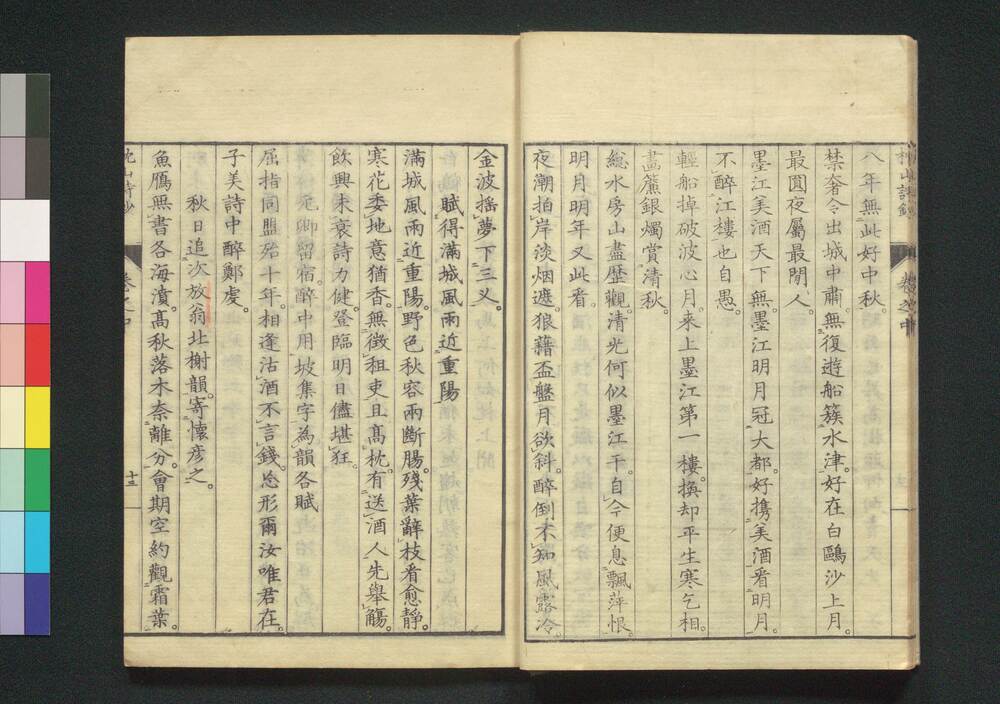 八年無此好中秋。
禁奢令出城中肅。無復遊船簇水津。好在白鷗沙上月。
最圓夜屬最閒人。
墨江美酒天下無。墨江明月冠大都。好携美酒看明月。
不醉江樓也自愚。
輕船掉破波心月。来上墨江第一樓。換却平生寒乞相。
畵簾銀燭賞清秋。
緫水房山盡歴觀。清光何似墨江干。自今便息飄萍恨。
明月明年又此看。
夜潮拍岸淡烟遮。狼藉盃盤月欲斜。醉倒不知風露冷。
金波搖夢下三叉。
賦得滿城風雨近重陽
滿城風雨近重陽。野色秋容兩斷腸。殘葉辭枝看愈靜。
寒花委地意猶香。無徴租吏且高枕。有送酒人先舉觴。
飲興未衰詩力健。登臨明日儘堪狂。
宛卿留宿。醉中用坡集字為韻各賦
屈指同盟殆十年。相逢沽酒不言錢。忘形爾汝唯君在。
子美詩中醉鄭虔。
秋日追次放翁北榭韻。寄懷彦之。
魚鴈無書各海濆。高秋落木奈離分。會期空約觀霜葉。
枕山詩鈔
卷之中
十三